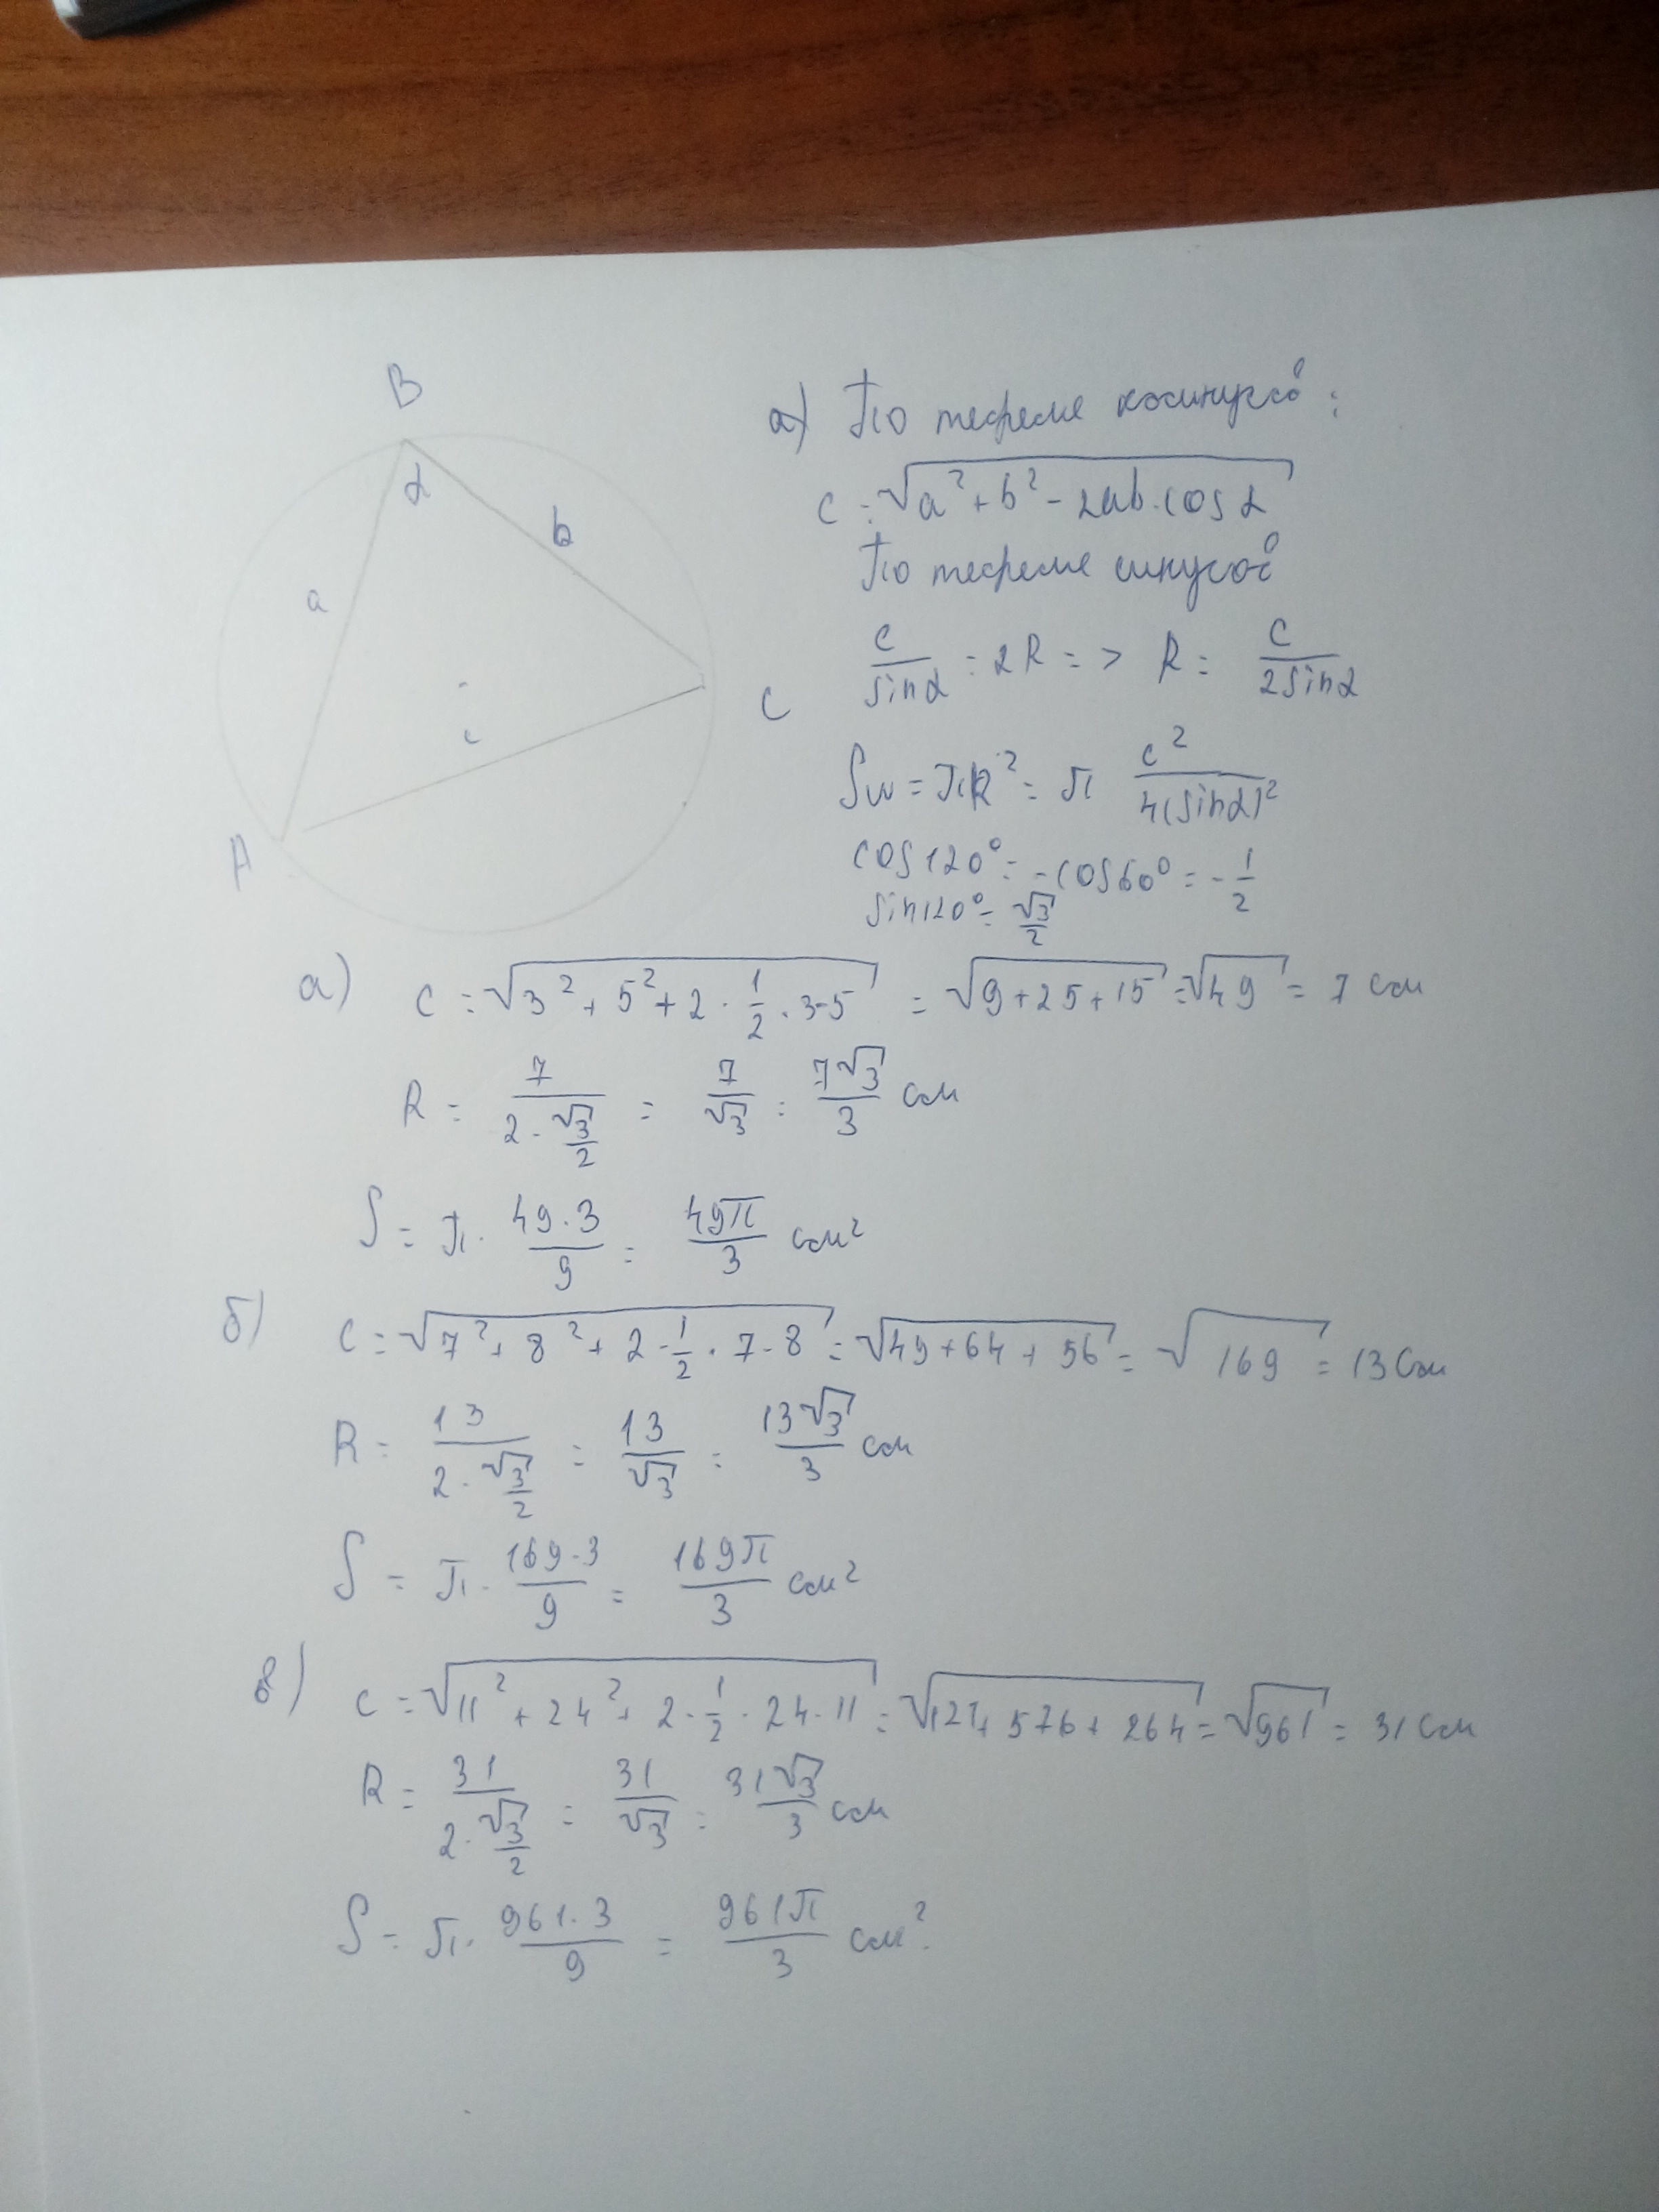 B
α
a
b
c
A
C
а) По теореме косинусов:
c = √(a² + b² - 2ab·cos α)
По теореме синусов
c/sinα = 2R => R = c/2sinα
Sw = πR² = π c²/4(sinα)²
cos120° = -cos60° = -1/2
sin120° = √3/2
а) c = √(3² + 5² + 2·1/2·3·5) = √(9+25+15) = √49 = 7 см
R = 7/(2·√3/2) = 7/√3 = 7√3/3 см
S = π·49·3/9 = 49π/3 см²
б) c = √(7² + 8² + 2·1/2·7·8) = √(49+64+56) = √169 = 13 см
R = 13/(2·√3/2) = 13/√3 = 13√3/3 см
S = π·169·3/9 = 169π/3 см²
в) c = √(11² + 24² + 2·1/2·24·11) = √(121+576+264) = √961 = 31 см
R = 31/(2·√3/2) = 31/√3 = 31√3/3 см
S = π·961·3/9 = 961π/3 см².